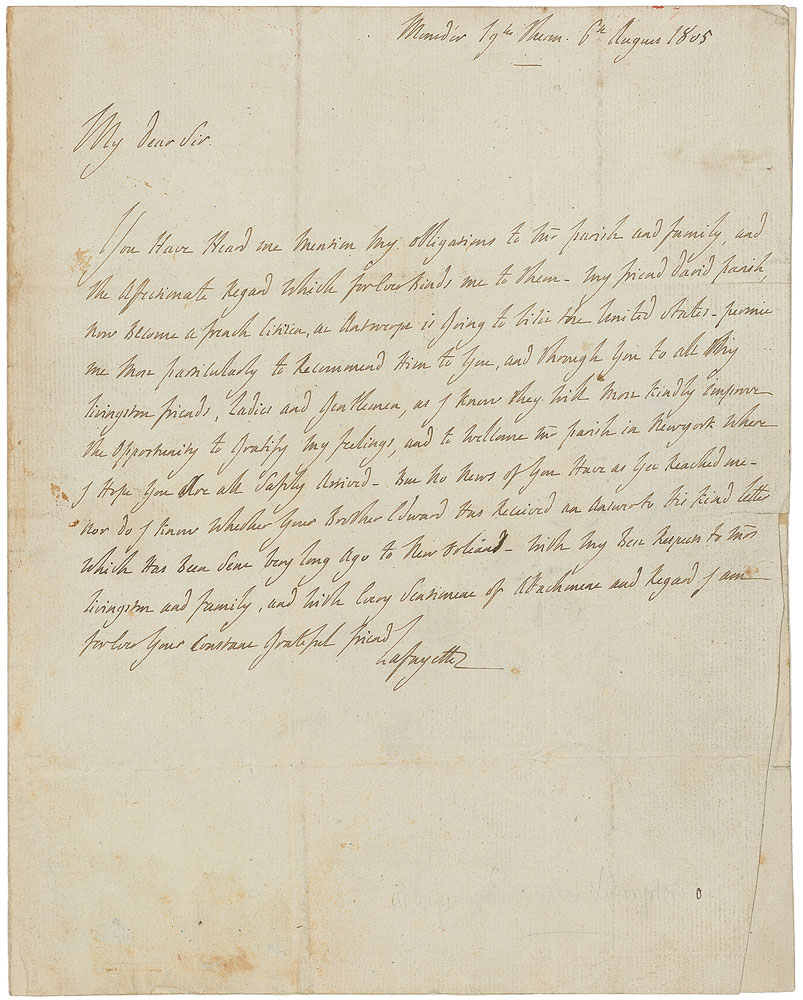 Mondor 19th Therm. 6th August 1805
My dear Sir
You Have Heard me Mention My obligations to Mr parish and family, and
the Affectionate Regard Which for Ever Binds me to them – My friend david parish,
Now Become a french Citizen, at Antwerp is Going to Visit the United States – permit
me Most particularly to Recommend Him to You, and through You to all My
Livingston friends, Ladies and Gentlemen, as I know they Will Most Kindly improve
the Opportunity to Gratify My feelings, and to Wellcome Mr parish in Newyork Where
I Hope You Are all Safely Arrived – But No News of You Have as Yet Reached me –
Nor do I know Whether Your Brother Edward Has Received an Answer to His Kind letter
Which Has Been Sent Very long Ago to New orleans – With My Best Respects to Mrs
Livingston and family, and With Every Sentiment of Attachment and Regard I am
for Ever Your Constant Grateful friend
Lafayette